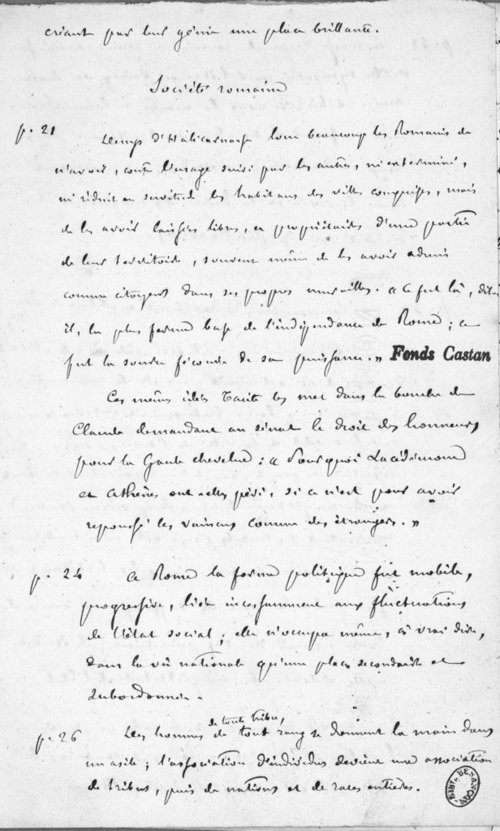 créant par leur génie une place brillante.
Société romaine
p. 21 Denys d'Halicarnasse loue beaucoup les Romains de
n'avoir, contre l'usage suivi par les autres, ni exterminé,
ni réduit en servitude les habitans des villes conquises, mais
de les avoir laissés libres, et propriétaires d'une partie
de leur territoire, souvent même de les avoir admis
comme citoyens dans ses propres murailles. « Ce fut là, dit-
il, la plus ferme base de l'indépendance de Rome ; ce
fut la source féconde de sa puissance. » Fonds Castan
Ces mêmes idées Tacite les met dans la bouche de
Claude demandant au sénat le droit des honneurs
pour la Gaule chevelue : « Pourquoi Lacédémone
et Athènes ont-elles péri, si ce n'est pour avoir
repoussé les vaincus comme des étrangers. »
p. 24 A Rome la forme politique fut mobile,
progressive, liée incessamment aux fluctuations
de l'état social ; elle n'occupa même, à vrai dire,
dans la vie nationale qu'une place secondaire et
subordonnée.
de toute tribu,
p. 26 Les hommes de tout rang se donnent la main dans
un asile ; l'association d'individus devient une association
de tribus, puis de nations et de races entières.